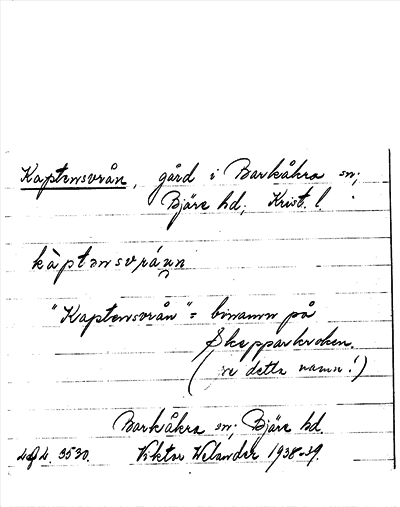 Kaptensvrån, gård i Barkåkra sn;
Bjäre hd; Krist. l.
kàptənsvráṇn
"Kaptensvrån" = binamn på
Skepparkroken.
(se detta namn!)
Barkåkra sn; Bjäre hd.
4of 4. 3530. Viktor Welander 1938-39.